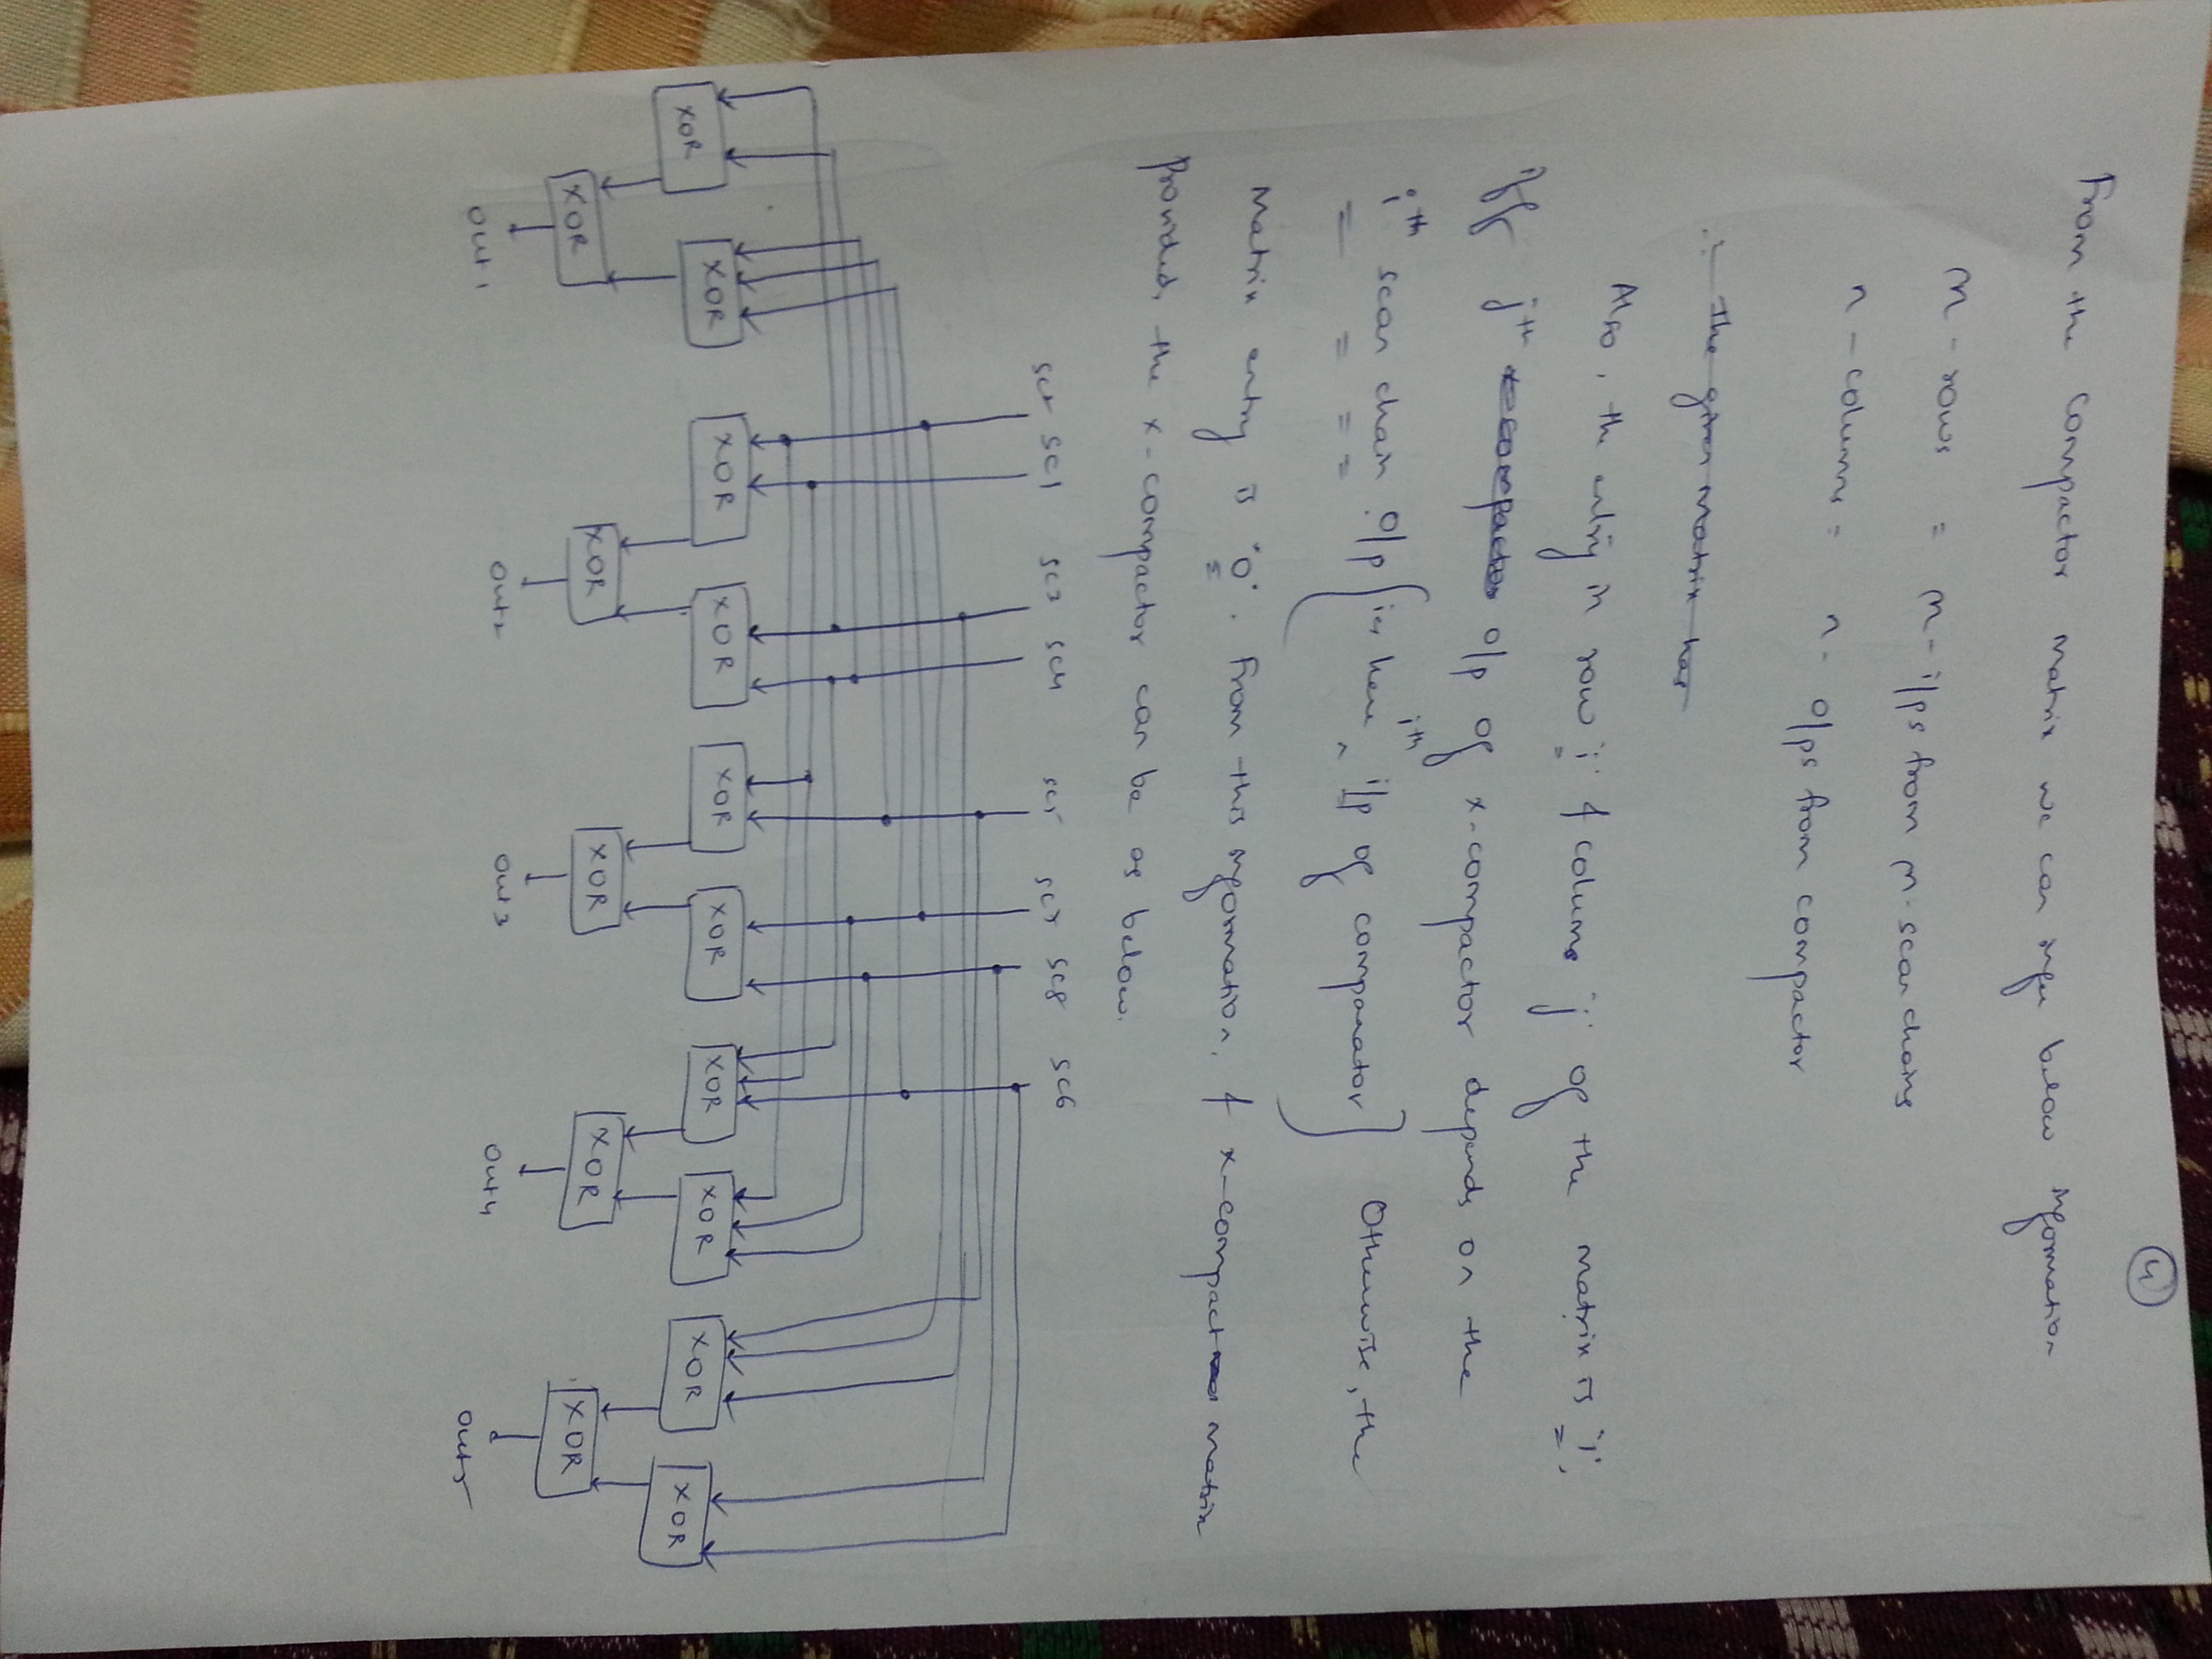 4
From the compactor matrix we can infer below information
M - rows = M - i/ps from M - scan chains
n - columns = n - o/ps from compactor
∴ the given matrix has
Also, the entry in row "i" & column "j" of the matrix is "1",
iff jth x-compactor o/p of x-compactor depends on the
ith scan chain o/p [ie here ith i/p of compactor] Otherwise, the
Matrix entry is "0". From this information, & x-compact matrix
provided, the x-compactor can be as below.
SC2 SC1 SC3 SC4 SC5 SC7 SC8 SC6
XOR XOR XOR XOR XOR XOR XOR XOR XOR XOR
XOR XOR XOR XOR XOR
Out1 Out2 Out3 Out4 Out5